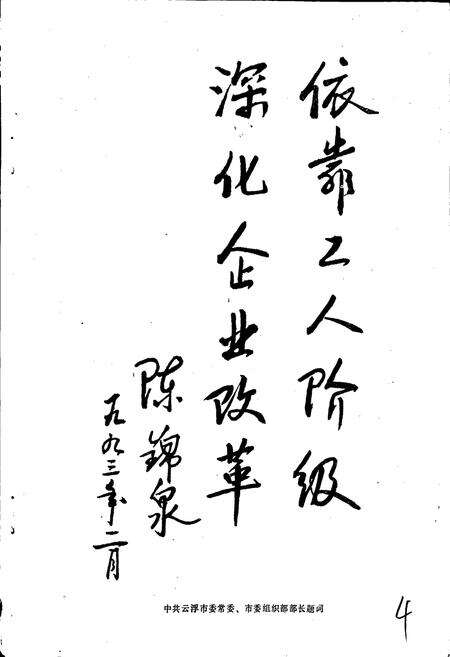 依靠工人阶级
深化企业改革
陈锦泉
一九九三年二月
中共云浮市委常委、市委组织部部长题词
4